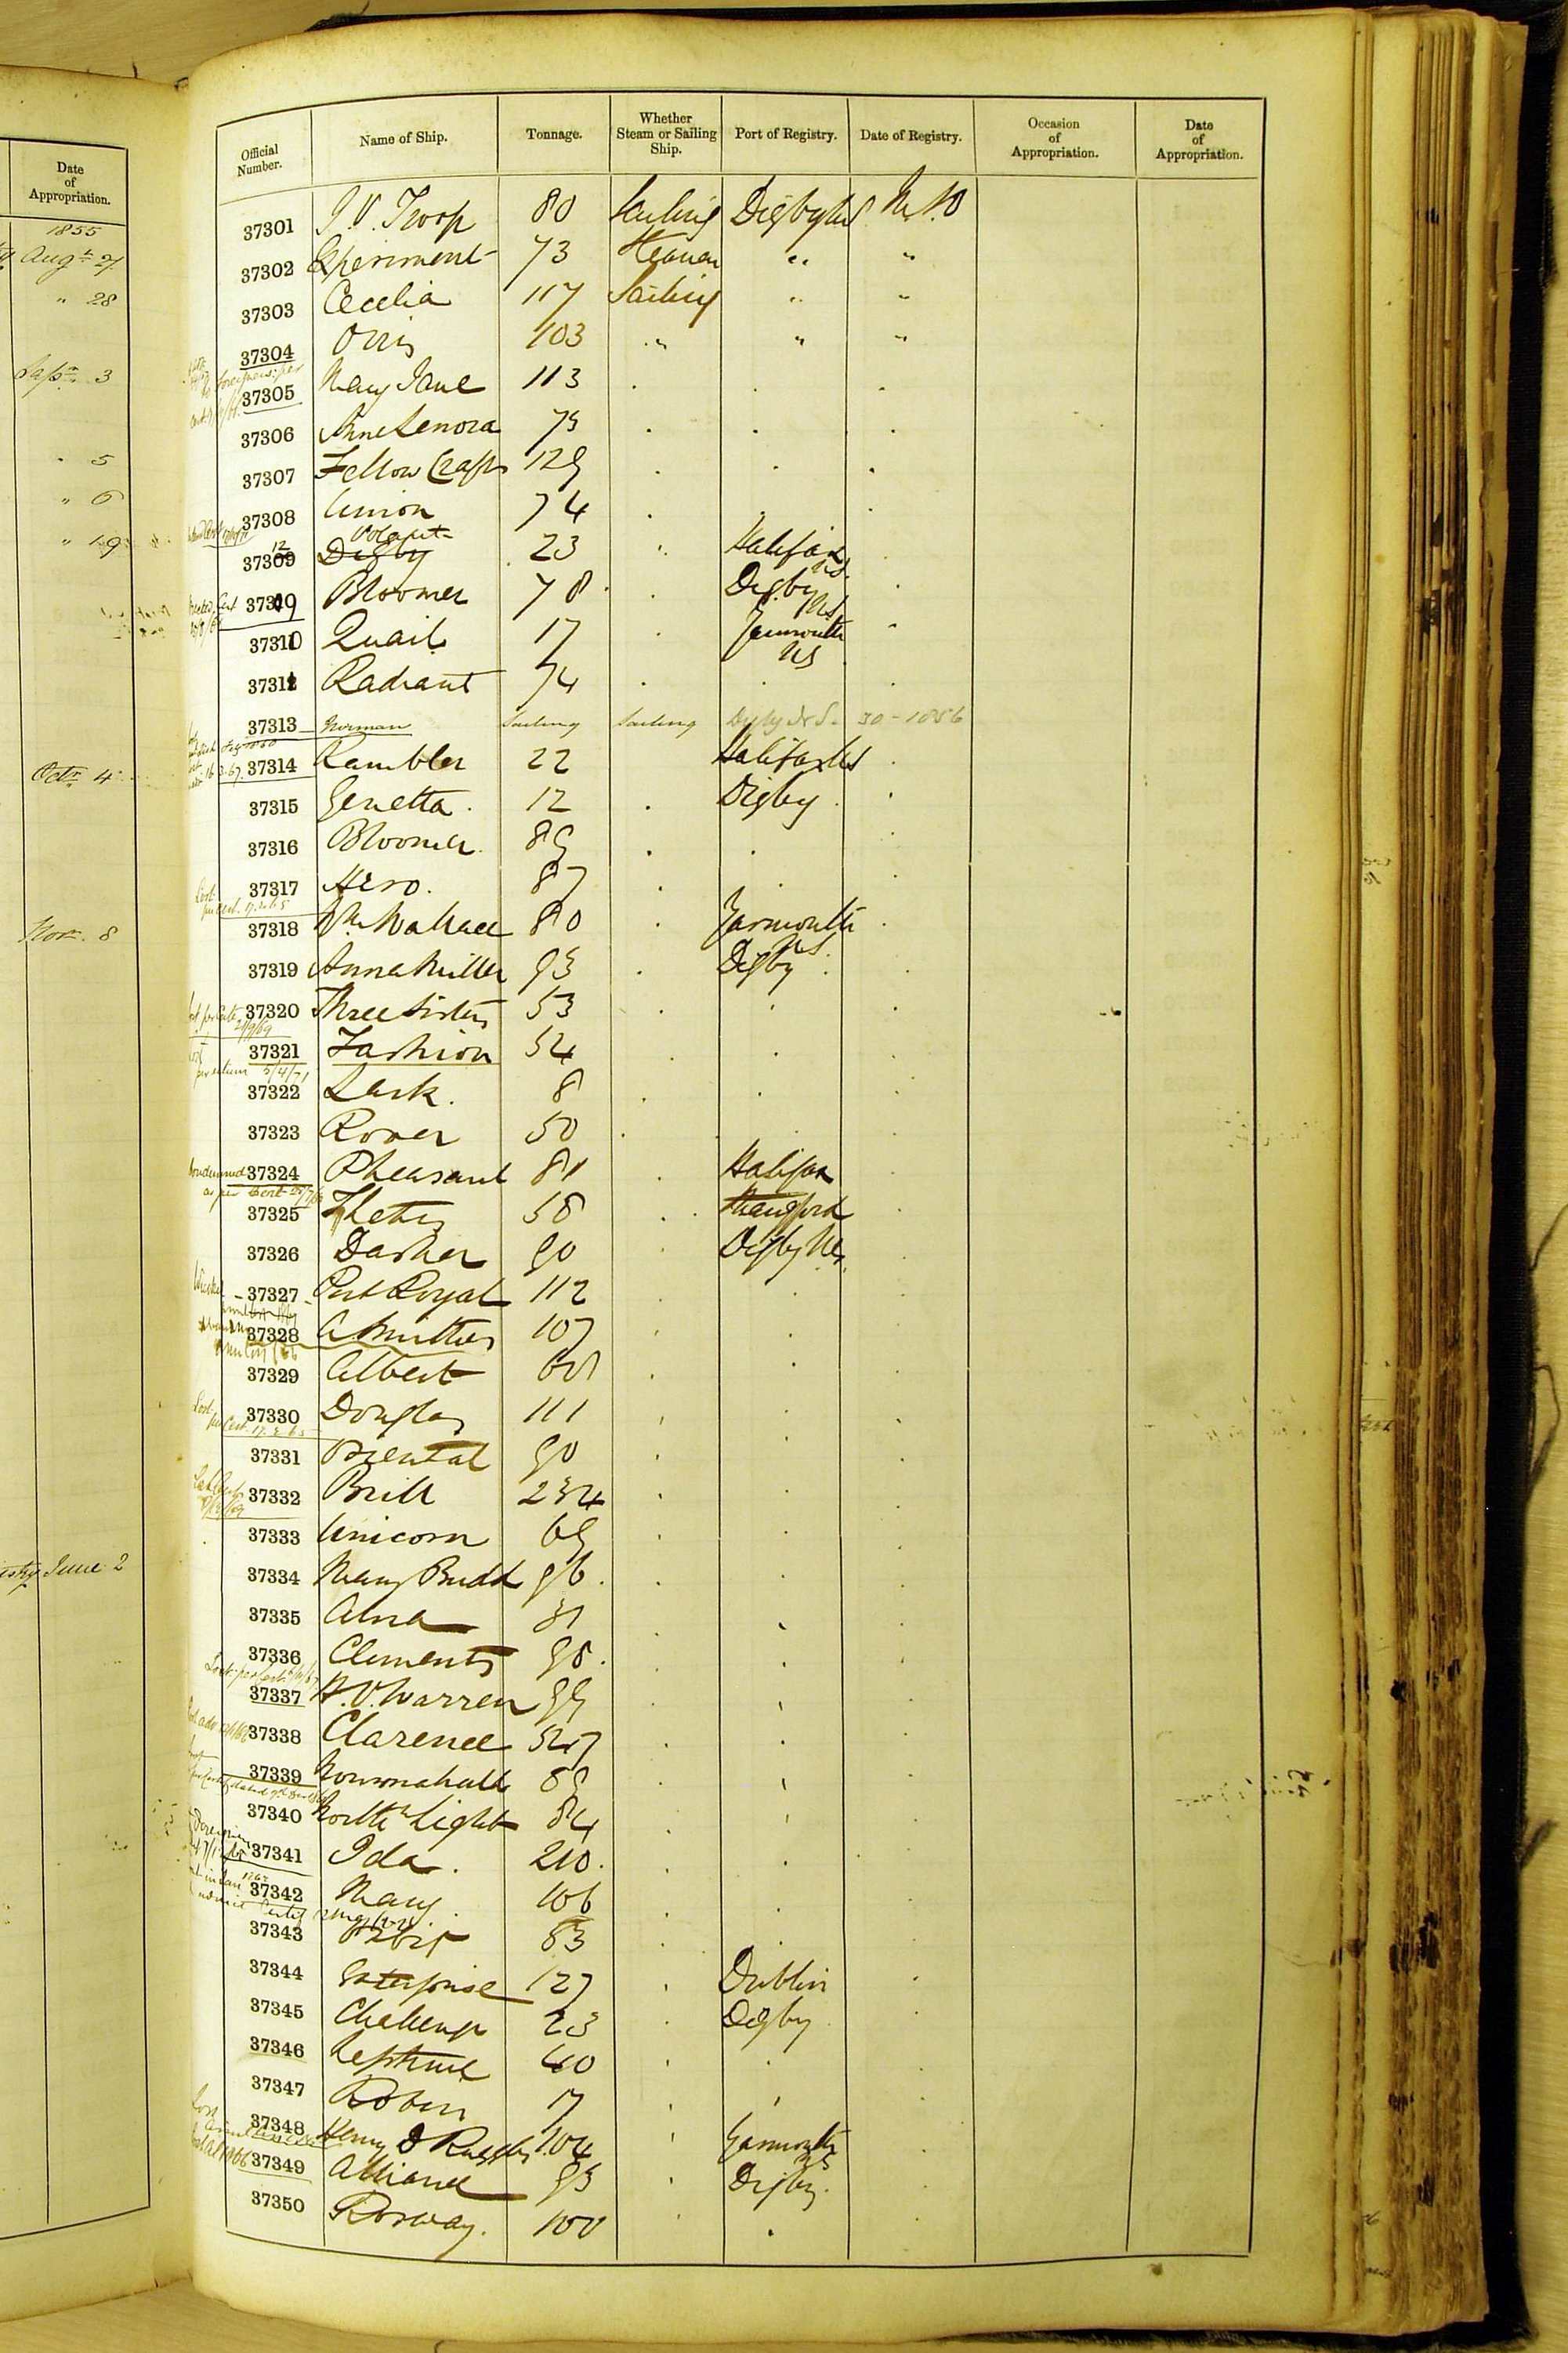 Date of Appropriation.
1855
Augt 27
" 28
Sepr 3
" 5
" 6
" 19
Octr 4
Novr 8
June 2
Official Number. Name of Ship. Tonnage. Whether Steam or Sailing Ship. Port of Registry. Date of Registry. Occasion of Appropriation. Date of Appropriation.
37301 J. V. Troop 80 Sailing Digby NS
37302 Experiment 73 Steamer " "
37303 Cecelia 117 Sailing " "
37304 Orris 103 " " "
37305 Mary Jane 113 . . .
37306 Anne Lenora 75 . . .
37307 Fellow Crafts 129 . . .
37308 Union 74 . . .
37309 12 Digby Volant 23 " Halifax NS .
37319 Bloomer 78 . Digby NS .
37310 Quail 17 . Yarmouth NS "
37311 Radiant 74 . . .
37313 Norman Sailing Sailing Digby N.S. 30 - 1856
37314 Rambler 22 Halifax NS .
37315 Genetta 12 . Digby .
37316 Bloomer 89 . . .
37317 Hero. 87 . . .
Lost per Cert. 17.2.65
37318 Wm Wallace 80 . Yarmouth NS .
37319 Anna Miller 95 . Digby .
37320 Three Sisters 53 . . .
37321 Fashion 54 . . .
5/4/71
37322 Lark. 8 . . .
37323 Rover 50 . . .
37324 Pheasant 81 Halifax .
Condemned as per Cert
37325 Thetis 58 . .
37326 Dasher 90 . Digby NS .
37327 Port Royal 112 . .
37328 107 . .
37329 Albert . .
37330 Douglas 111 . . .
Lost per Cert. 17.2.65
37331 Oriental 90 . . .
37332 Brill 234 . . .
37333 Unicorn 69 . . .
37334 Mary Budd 96 . . .
37335 Alma 31 . . .
37336 Clements 98 . . .
Lost per Cert.
37337 H. V. Warren 99 . .
37338 Clarence 527 . .
37339 89 . .
37340 North Light 84 . .
37341 Ida. 210 . .
37342 Mary 106 . .
37343 Orbit 83 . .
37344 Enterprise 127 . Dublin .
37345 Challenge 23 . Digby .
37346 Neptune 40 . . .
37347 Robin 17 . . .
37348 Henry D Ruggles 104 . Yarmouth NS .
37349 Alliance 95 . Digby. .
37350 Norway. 100 . . .